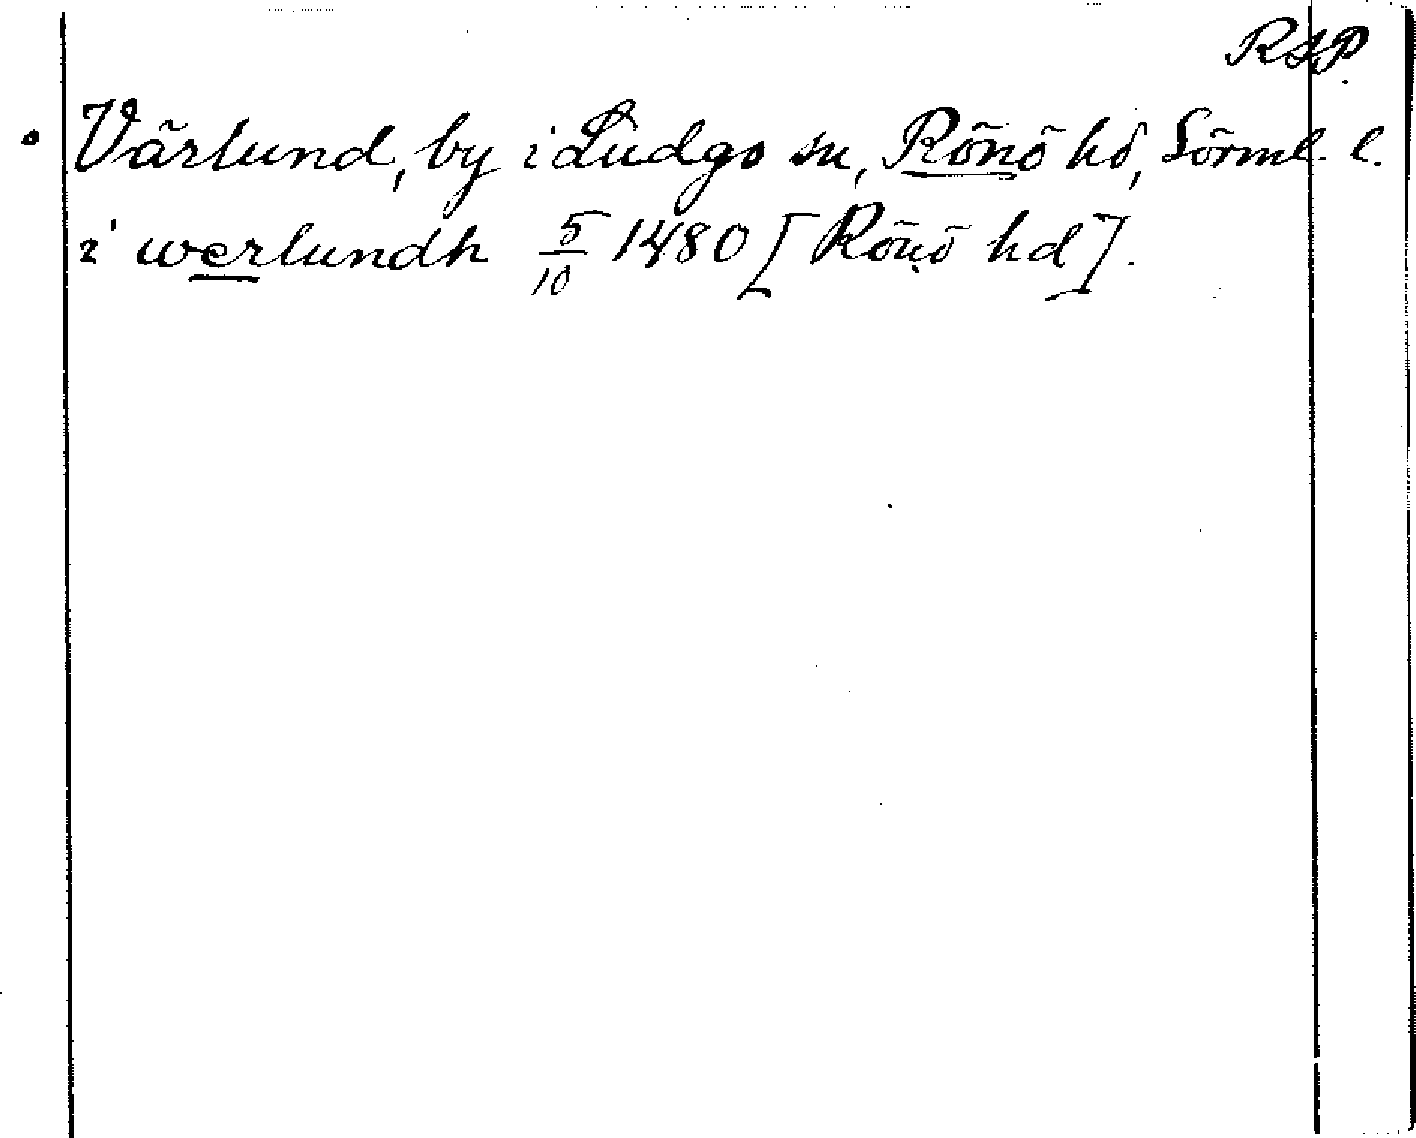 RAP.
• Värlund, by i Ludgo sn, Rönö hd, Sörml. l.
i werlundh 5/10 1480 [Rönö hd].